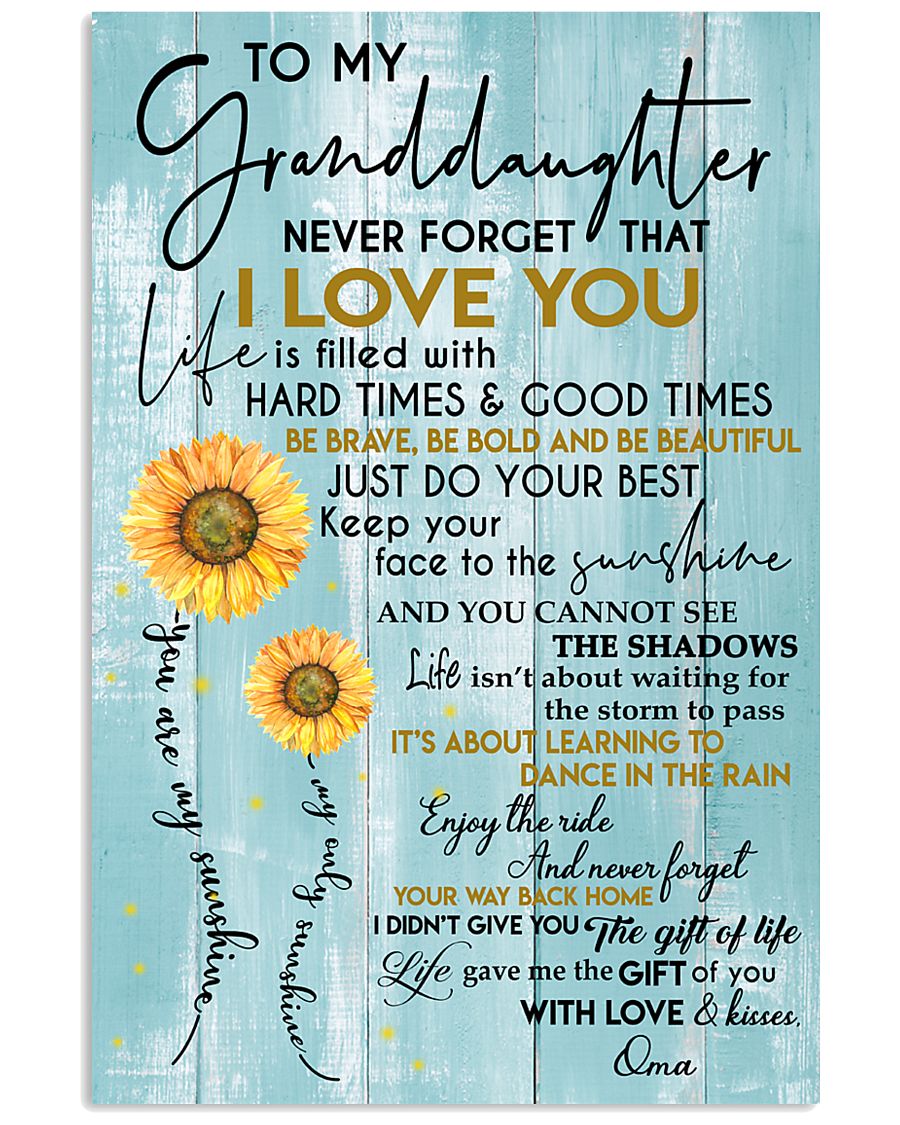 TO MY
Granddaughter
NEVER FORGET THAT
I LOVE YOU
Life is filled with
HARD TIMES & GOOD TIMES
BE BRAVE, BE BOLD AND BE BEAUTIFUL
JUST DO YOUR BEST
Keep your
face to the sunshine
AND YOU CANNOT SEE
THE SHADOWS
Life isn't about waiting for
the storm to pass
IT'S ABOUT LEARNING TO
DANCE IN THE RAIN
Enjoy the ride
And never forget
YOUR WAY BACK HOME
I DIDN'T GIVE YOU The gift of life
Life gave me the GIFT of you
WITH LOVE & kisses,
Oma
you are my sunshine
my only sunshine